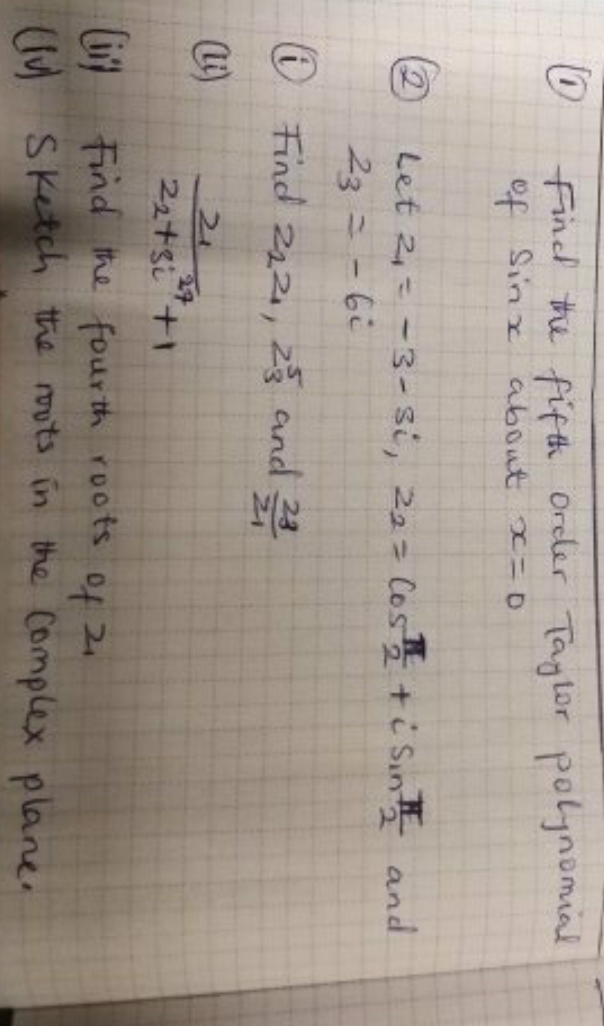 ① Find the fifth order Taylor polynomial
of Sin x about x = 0
② Let z₁ = -3-3i, z₂ = Cos π/2 + i Sin π/2 and
z₃ = -6i
(i) Find z₂z₁, z₃⁵ and z₃/z₁
(ii) z₁/(z₂+3i²⁷+1)
(iii) Find the fourth roots of z₁
(iv) Sketch the roots in the Complex plane.